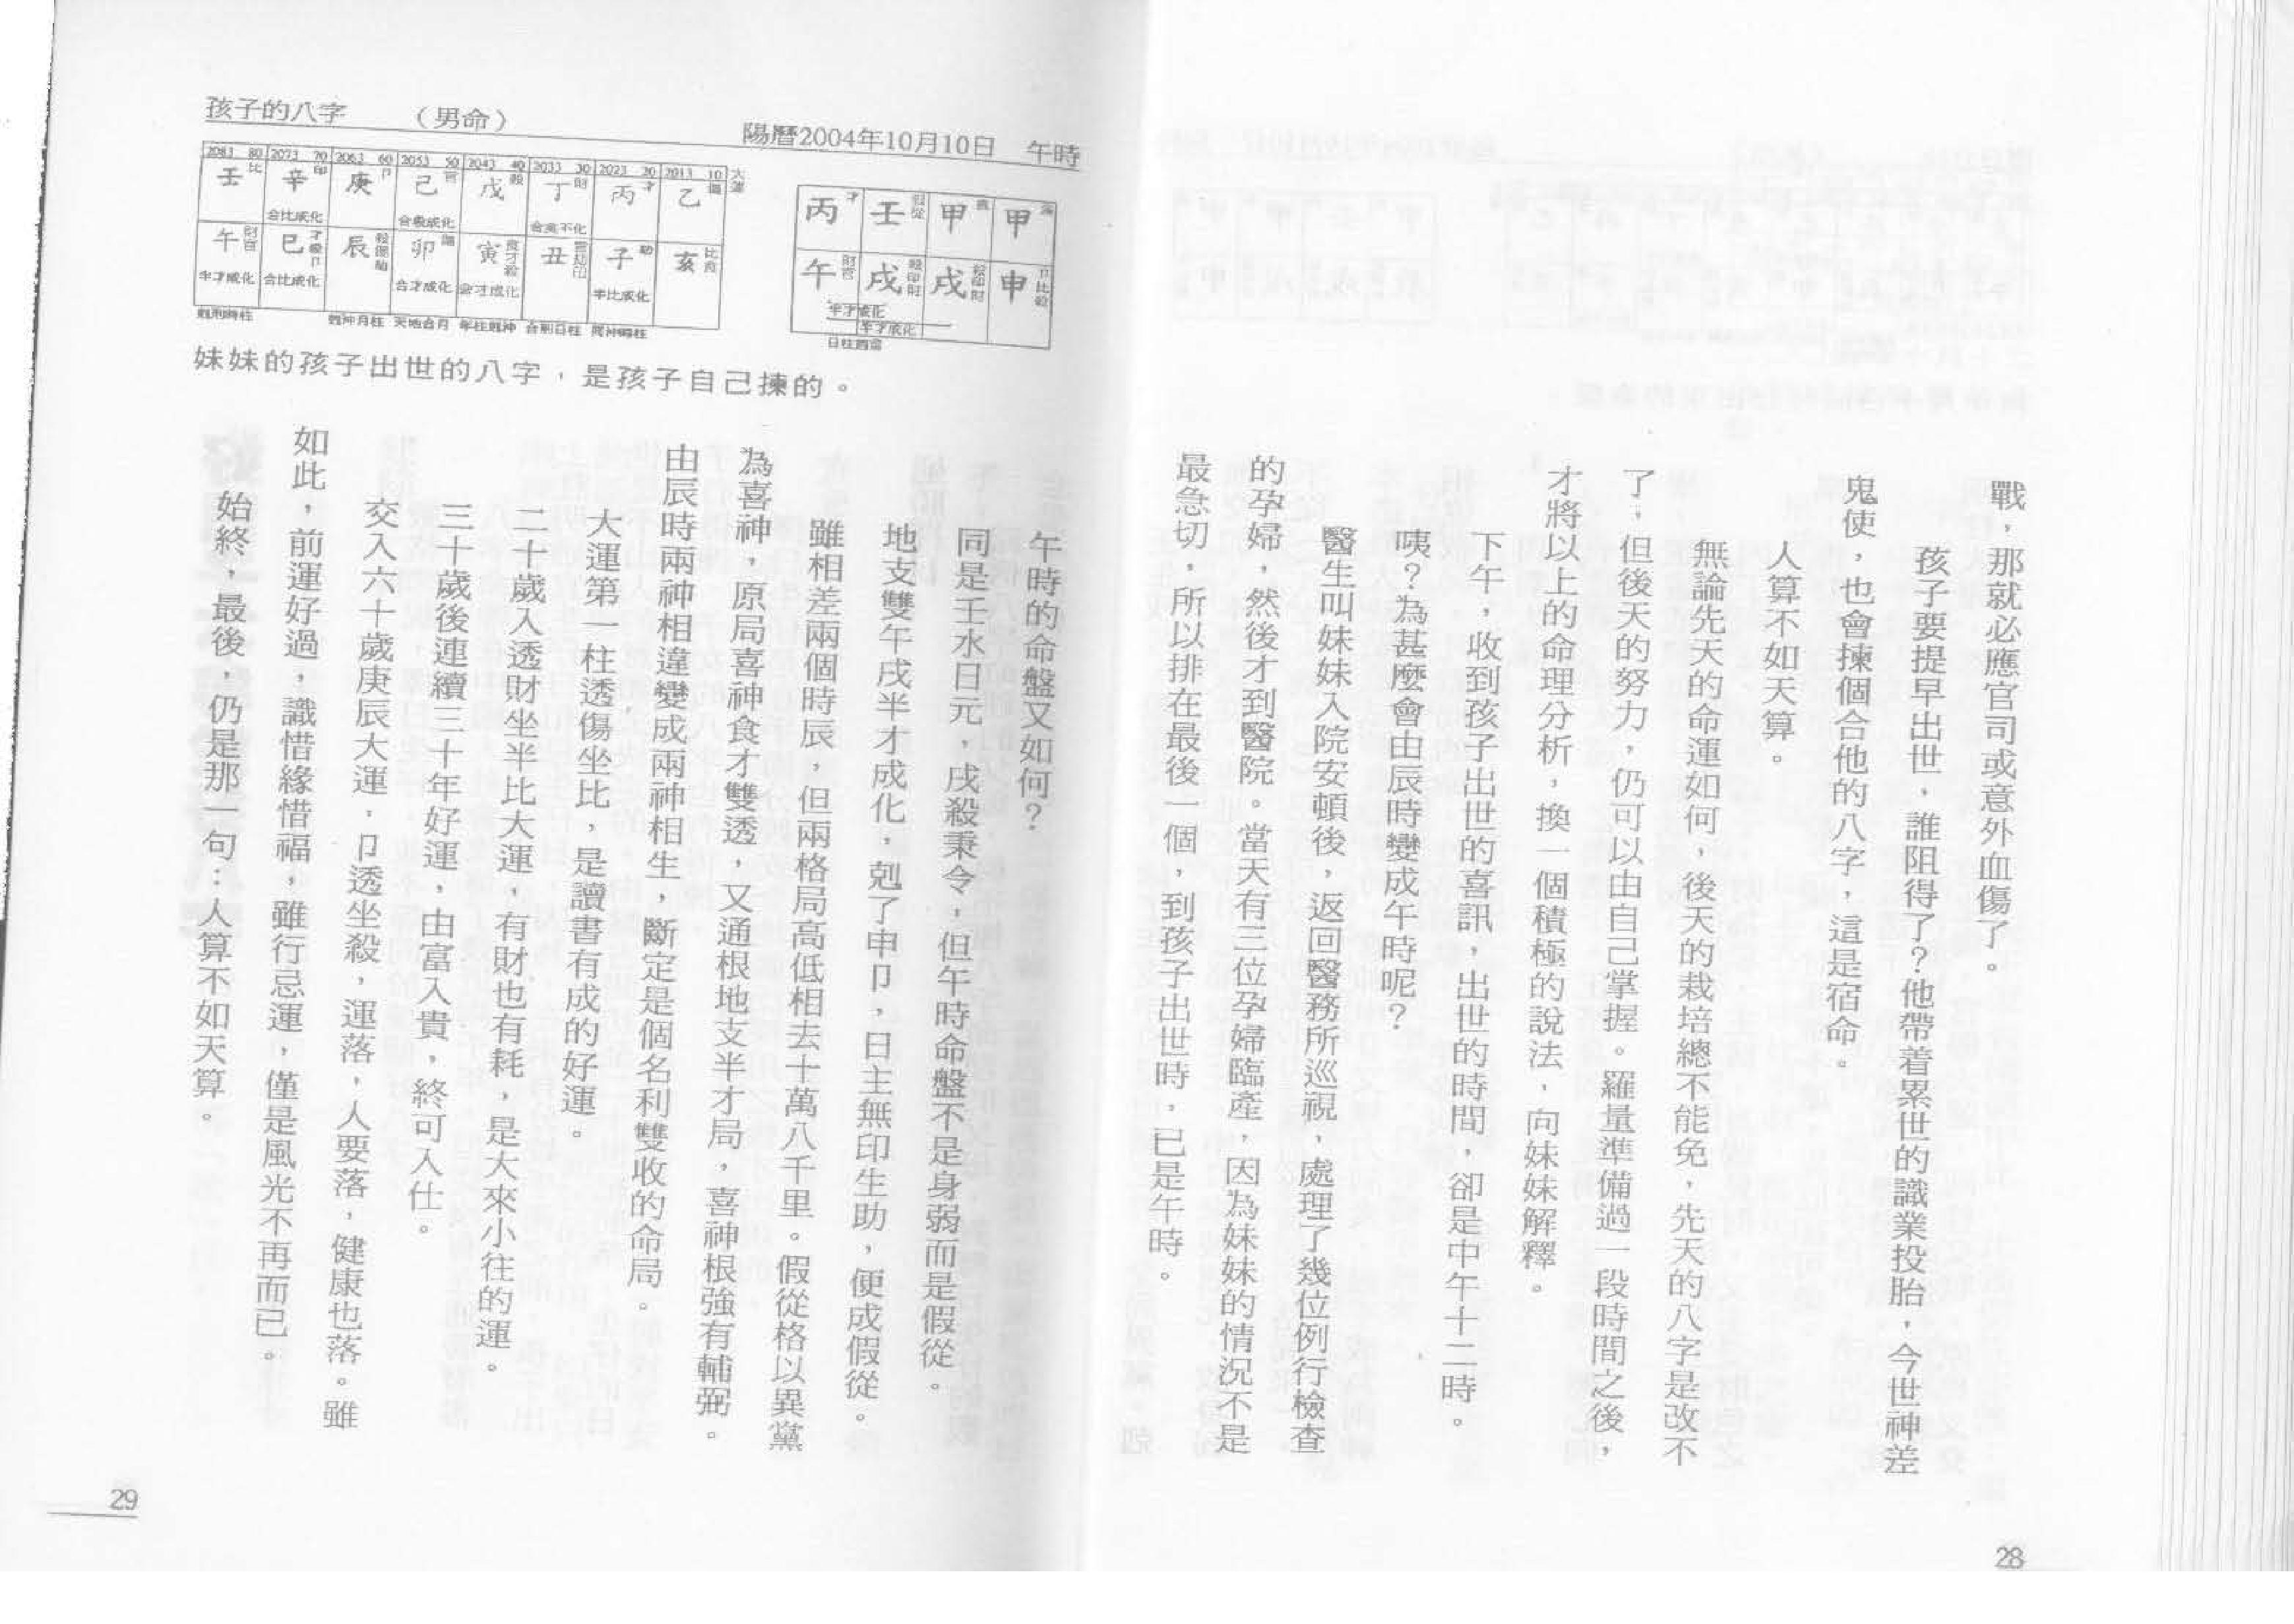 戰，那就必應官司或意外血傷了。
孩子要提早出世，誰阻得了？他帶着累世的識業投胎，今世神差
鬼使，也會揀個合他的八字，這是宿命。
人算不如天算。
無論先天的命運如何，後天的栽培總不能免，先天的八字是改不
了，但後天的努力，仍可以由自己掌握。羅量準備過一段時間之後，
才將以上的命理分析，換一個積極的說法，向妹妹解釋。
下午，收到孩子出世的喜訊，出世的時間，卻是中午十二時。
咦？為甚麼會由辰時變成午時呢？
醫生叫妹妹入院安頓後，返回醫務所巡視，處理了幾位例行檢查
的孕婦，然後才到醫院。當天有三位孕婦臨產，因為妹妹的情況不是
最急切，所以排在最後一個，到孩子出世時，已是午時。
28
孩子的八字 （男命） 陽曆2004年10月10日 午時
2083 80 2073 70 2063 60 2053 50 2043 40 2033 30 2023 20 2013 10 大運
壬比 辛印 庚卩 己官 戊殺 丁財 丙才 乙傷
合比成化 合殺成化 合亥不化
午財官 巳才殺卩 辰殺傷劫 卯傷 寅食才殺 丑官劫印 子劫 亥比食
半才成化 合比成化 合才成化 會才成化 半比成化
尅刑時柱 尅沖月柱 天地合月 年柱尅沖 合刑日柱 尅沖時柱
丙才 壬假從 甲食 甲食
午財官 戌殺印財 戌殺印財 申卩比殺
半才成化
半才成化
妹妹的孩子出世的八字，是孩子自己揀的。
午時的命盤又如何？
同是壬水日元，戌殺秉令，但午時命盤不是身弱而是假從。
地支雙午戌半才成化，剋了申卩，日主無印生助，便成假從。
雖相差兩個時辰，但兩格局高低相去十萬八千里。假從格以異黨
為喜神，原局喜神食才雙透，又通根地支半才局，喜神根強有輔弼。
由辰時兩神相違變成兩神相生，斷定是個名利雙收的命局。
大運第一柱透傷坐比，是讀書有成的好運。
二十歲入透財坐半比大運，有財也有耗，是大來小往的運。
三十歲後連續三十年好運，由富入貴，終可入仕。
交入六十歲庚辰大運，卩透坐殺，運落，人要落，健康也落。雖
如此，前運好過，識惜緣惜福，雖行忌運，僅是風光不再而已。
始終，最後，仍是那一句：人算不如天算。
29